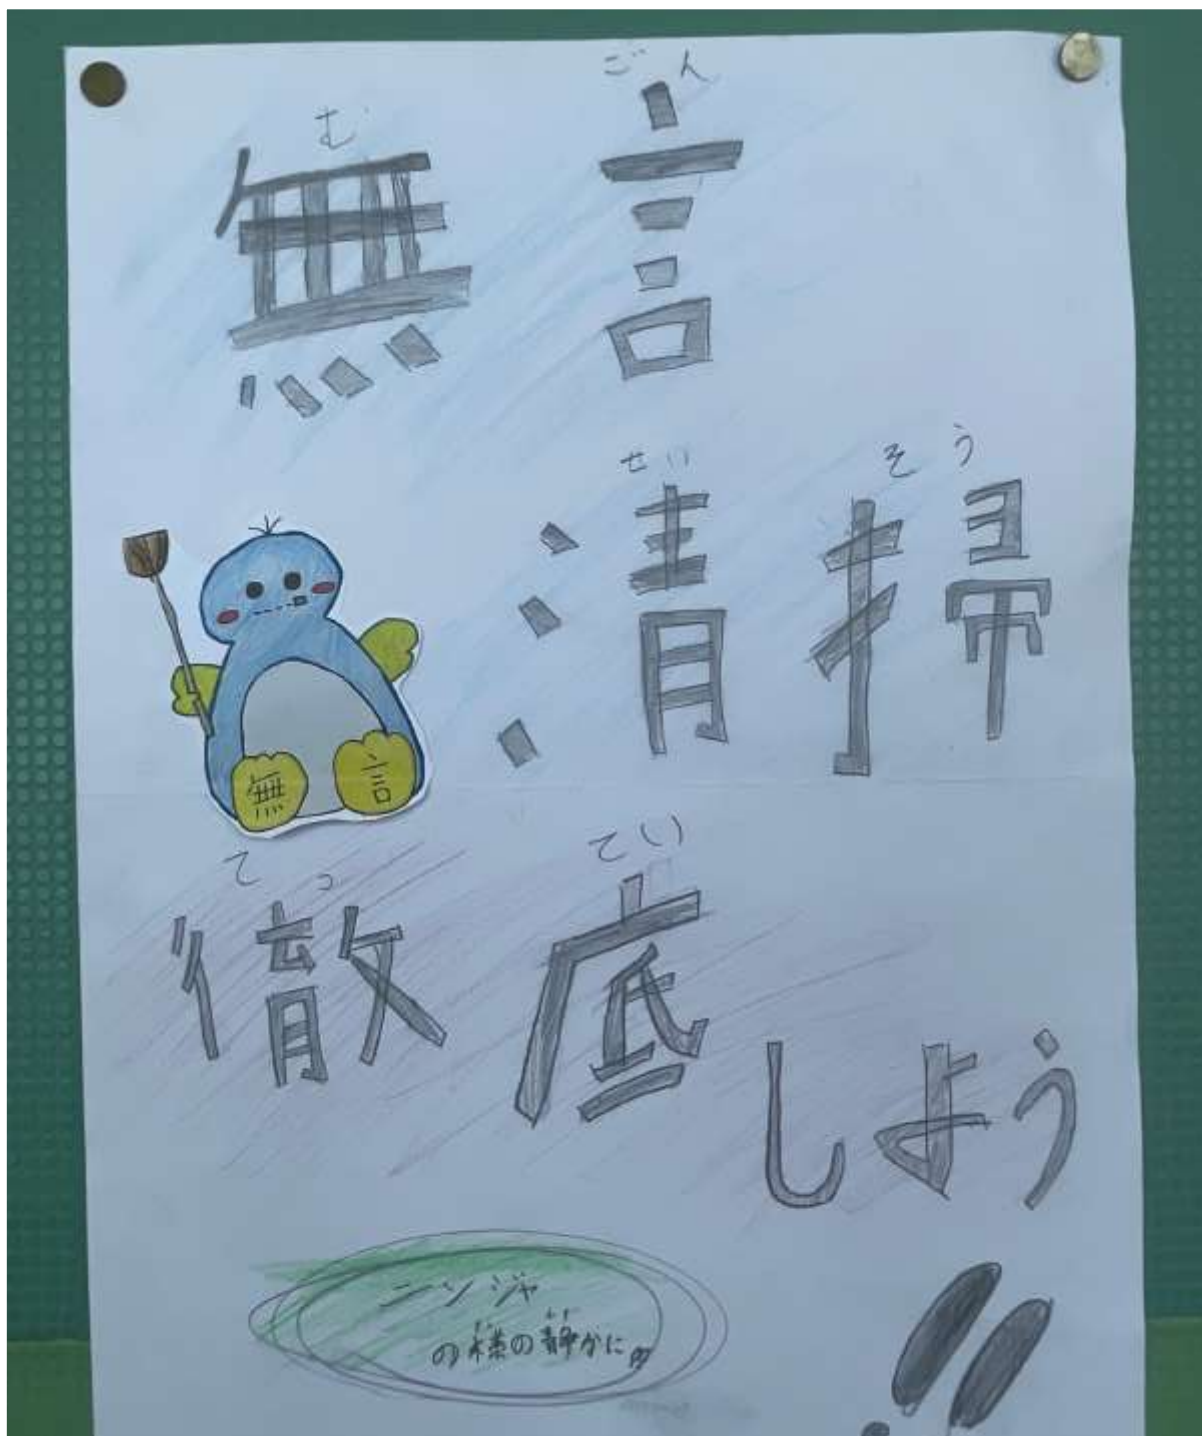 むごん
無言
せいそう
清掃
無言
てってい
徹底
しよう
!!
ニンジャ
の様の静かに